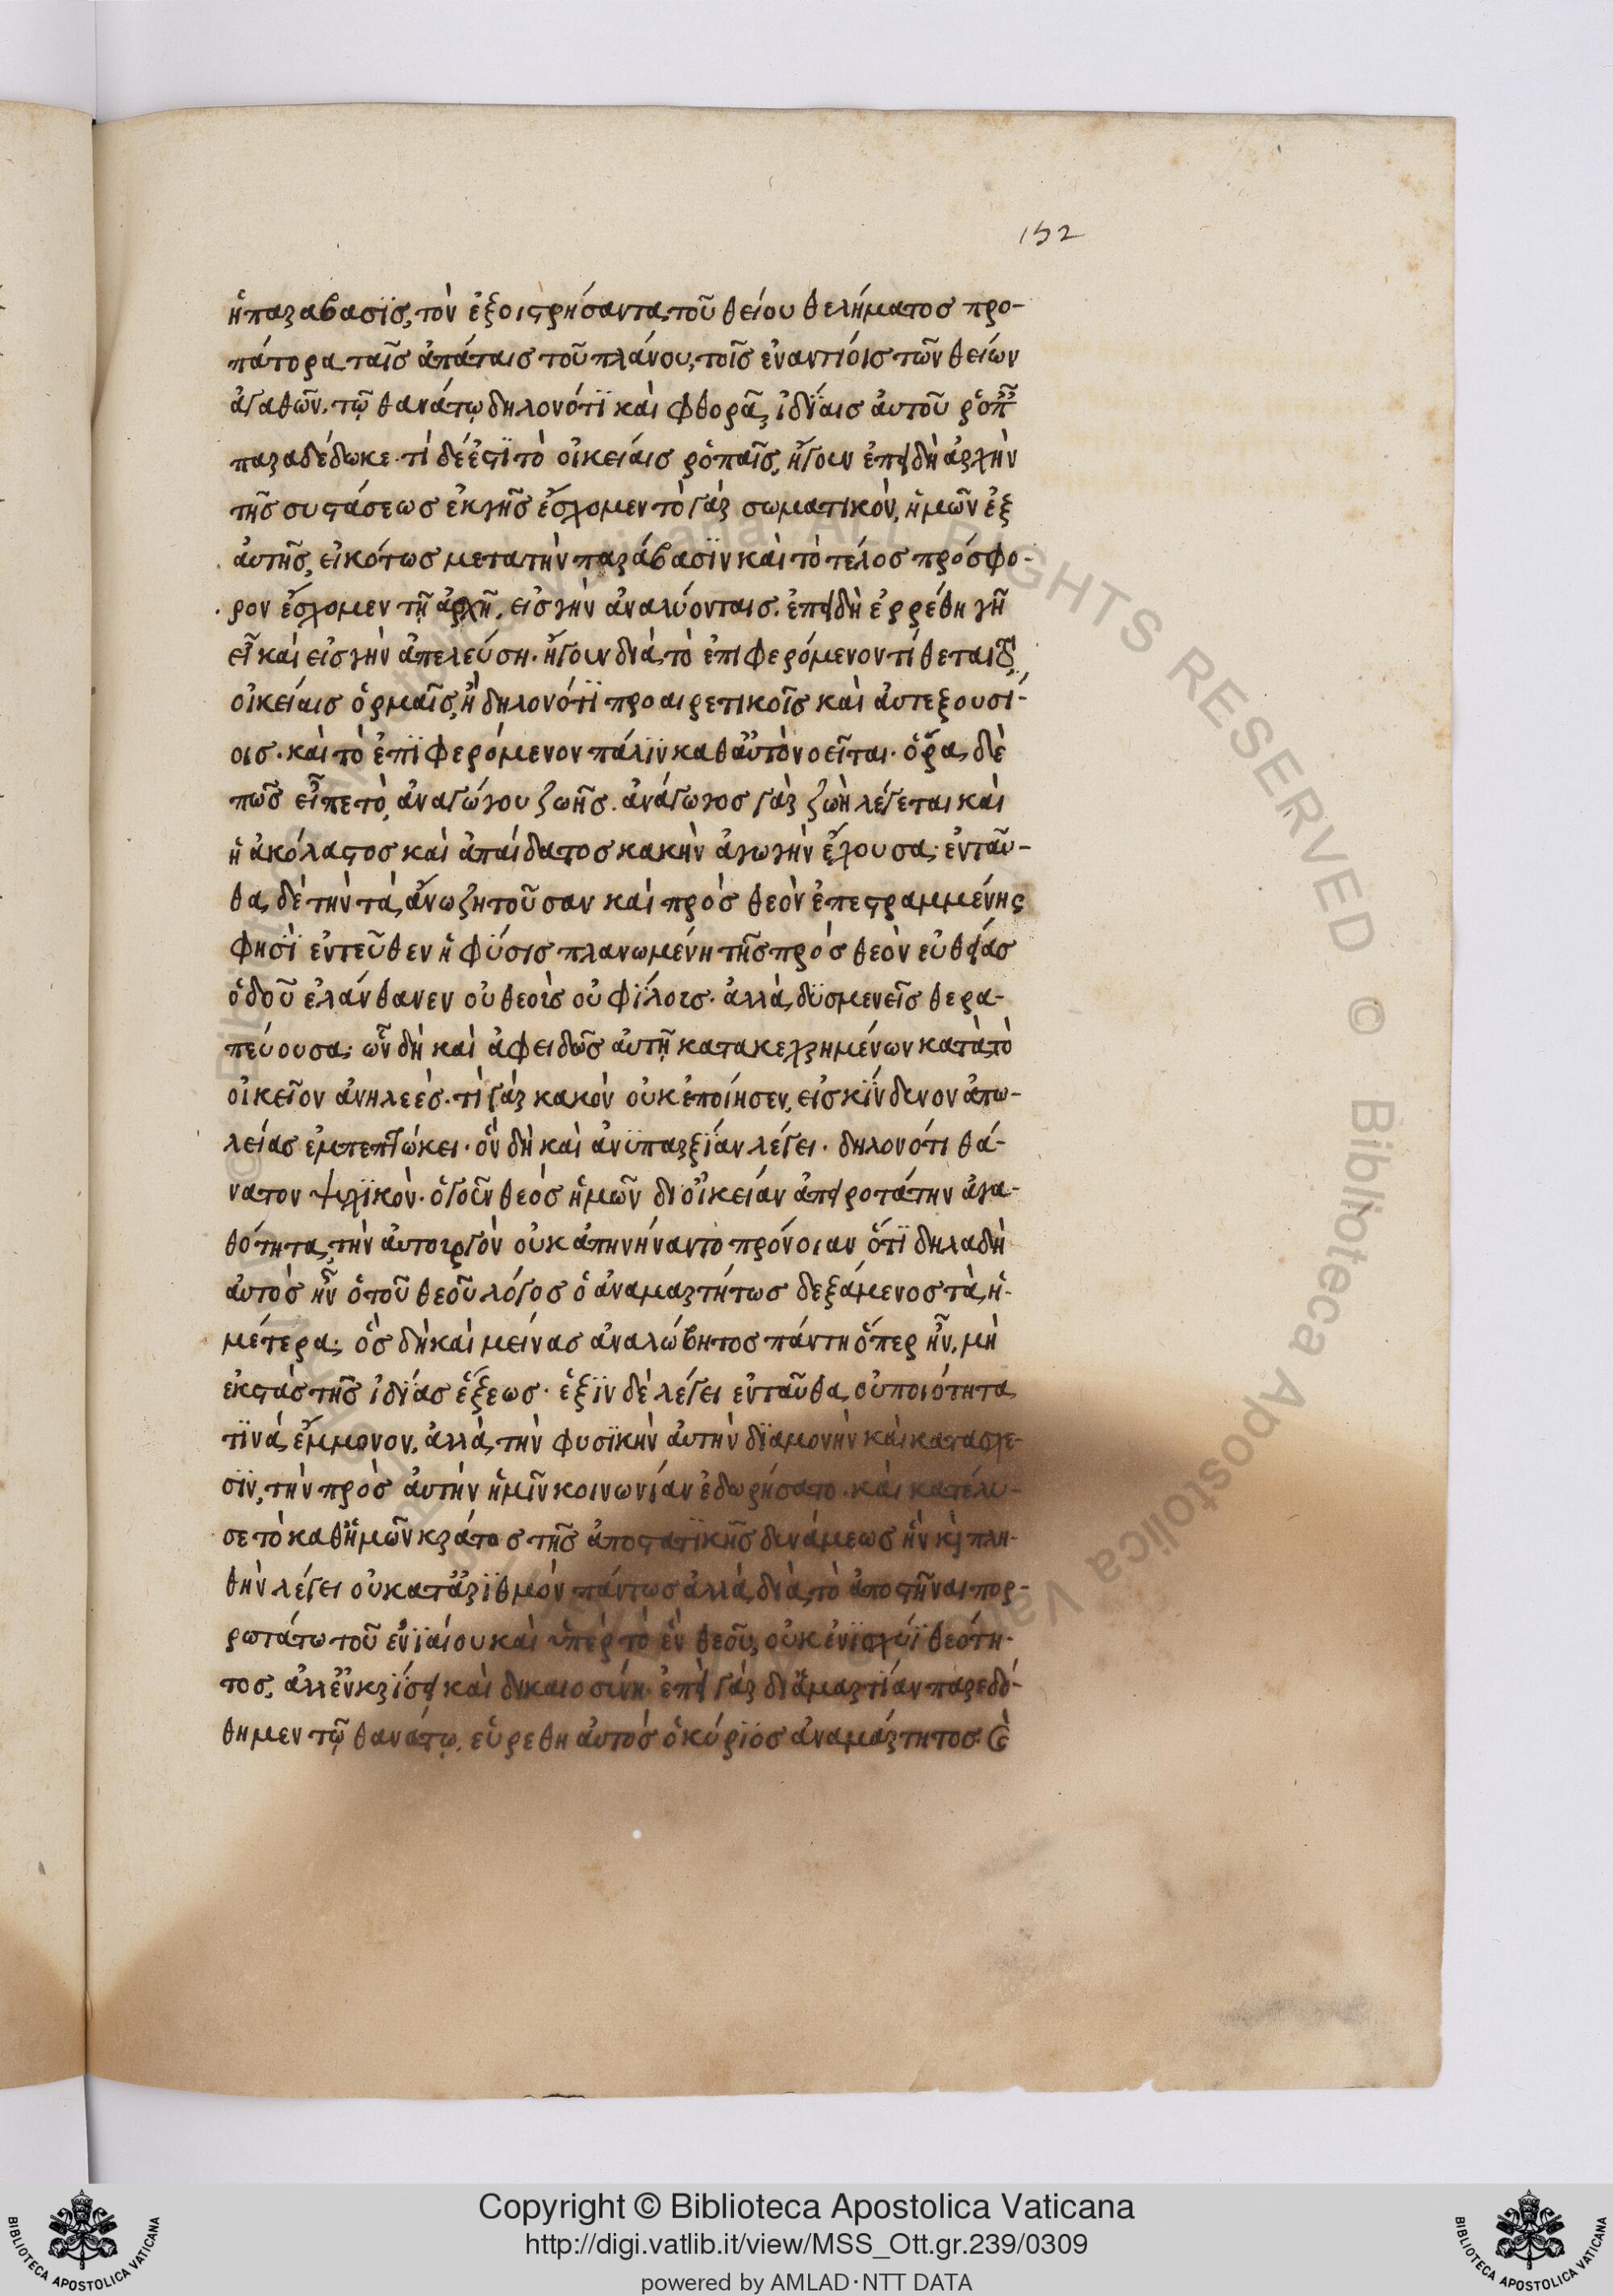 152
ἡ παράβασϊς, τὸν ἐξοιστρήσαντα τοῦ θείου θελήματος προ-
πάτορα ταῖς ἀπάταις τοῦ πλάνου, τοῖς ἐναντίοις τῶν θείων
ἀγαθῶν. τῷ θανάτῳ δηλονότϊ καὶ φθορᾷ, ἰδΐαις αὐτοῦ ῥοπ
παραδέδωκε. τί δέ ἐστϊ τὸ οἰκείαις ῥοπαῖς, ἤγουν ἐπειδὴ ἀρχὴν
τῆς συστάσεως ἐκ γῆς ἔσχομεν τὸ γὰρ σωματικὸν, ἡμῶν ἐξ
αὐτῆς, εἰκότως μετα τὴν παράβασϊν καὶ τὸ τέλος πρόσφο-
ρον ἔσχομεν τῇ ἀρχῇ, εἰς γὴν ἀναλύονταις. ἐπειδὴ ἐρρέθη γῆ
εἶ καὶ εἰς γὴν ἀπελεύση. ἤγουν διὰ τὸ ἐπιφερόμενον τίθεται
οἰκείαις ὁρμαῖς, ἢ δηλονότϊ προαιρετικοῖς καὶ αὐτεξουσί-
οις. καὶ τὸ ἐπϊφερόμενον πάλϊν καθ αὑτὸ νοεῖται. ὅρα δὲ
πῶς εἶπε τὸ, ἀναγώγου ζωῆς. ἀνάγωγος γὰρ ζωὴ λέγεται καὶ
ἡ ἀκόλαστος καὶ ἀπαίδατος κακὴν ἀγωγὴν ἔχουσα· ἐνταῦ-
θα δὲ τὴν τὰ ἄνω ζητοῦσαν καὶ πρὸς θεὸν ἐπεστραμμένης
φησϊ ἐντεῦθεν ἡ φύσις πλανωμένη τῆς πρὸς θεὸν εὐθείας
ὁδοῦ ἐλάνθανεν οὐ θεοὶς οὐ φΐλοις. ἀλλὰ δϋσμενεῖς θερα-
πεύουσα· ὧν δὴ καὶ ἀφειδῶς αὐτῇ κατακεχρημένων κατὰ τὸ
οἰκεῖον ἀνηλεές. τὶ γὰρ κακὸν οὐκ ἐποίησεν, εἰς κΐνδυνον ἀπω-
λείας ἐμπεπτώκει. ὃν δὴ καὶ ἀνϋπαρξΐαν λέγει. δηλονότι θά-
νατον ψυχϊκὸν. ὁ γοῦν θεὸς ἡμῶν δι οἰκείαν ἀπειροτάτην ἀγα-
θότητα, τὴν αὐτουργὸν οὐκ ἀπηνήναντο πρόνοιαν ὅτϊ δηλαδὴ
αὐτὸς ἦν ὁ τοῦ θεοῦ λόγος ὁ ἀναμαρτήτως δεξάμενος τὰ ἡ-
μέτερα· ὃς δὴ καὶ μείνας ἀναλώβητος πάντη ὅπερ ἦν, μὴ
ἐκστὰς τῆς ἰδΐας ἕξεως. ἕξϊν δὲ λέγει ἐνταῦθα, οὐ ποιότητα
τϊνὰ ἔμμονον, ἀλλὰ τὴν φυσϊκὴν αὐτὴν δϊαμονὴν καὶ κατασχε-
σϊν, τὴν πρὸς αὐτὴν ἡμῖν κοινωνίαν ἐδωρήσατο. καὶ κατέλυ-
σε τὸ καθ ἡμῶν κράτος τῆς ἀποστατϊκῆς δυνάμεως ἣν κὶ πλη-
θὴν λέγει οὐ κατ ἀρϊθμὸν πάντως ἀλλὰ διὰ τὸ ἀποστῆναι πορ-
ρωτάτω τοῦ ἑνϊαίου καὶ ὑπὲρ τὸ ἓν θεοῦ, οὐκ ἐν ϊσχύϊ θεότη-
τος, ἀλλ ἐν κρΐσει καὶ δικαιοσύνη· ἐπεὶ γὰρ δι ἁμαρτίαν παρεδό-
θημεν τῷ θανάτῳ, εὑρεθη αὐτὸς ὁ κύρϊος ἀναμάρτητος.